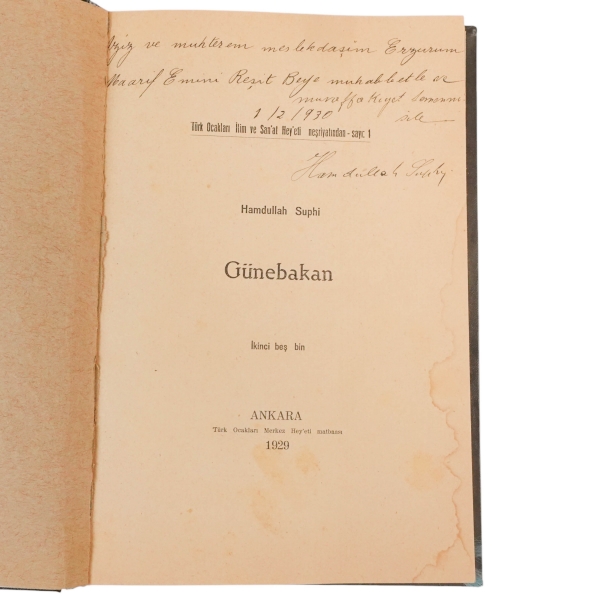 Aziz ve muhterem meslekdaşım Erzurum
Maarif Emini Reşit Beye muhabbetle ve
muvaffakıyet temenni
1/2/1930 ile
Türk Ocakları İlim ve San'at Hey'eti neşriyatından - sayı: 1
Hamdüllah Suphi
Hamdullah Suphi
Günebakan
İkinci beş bin
ANKARA
Türk Ocakları Merkez Hey'eti matbaası
1929